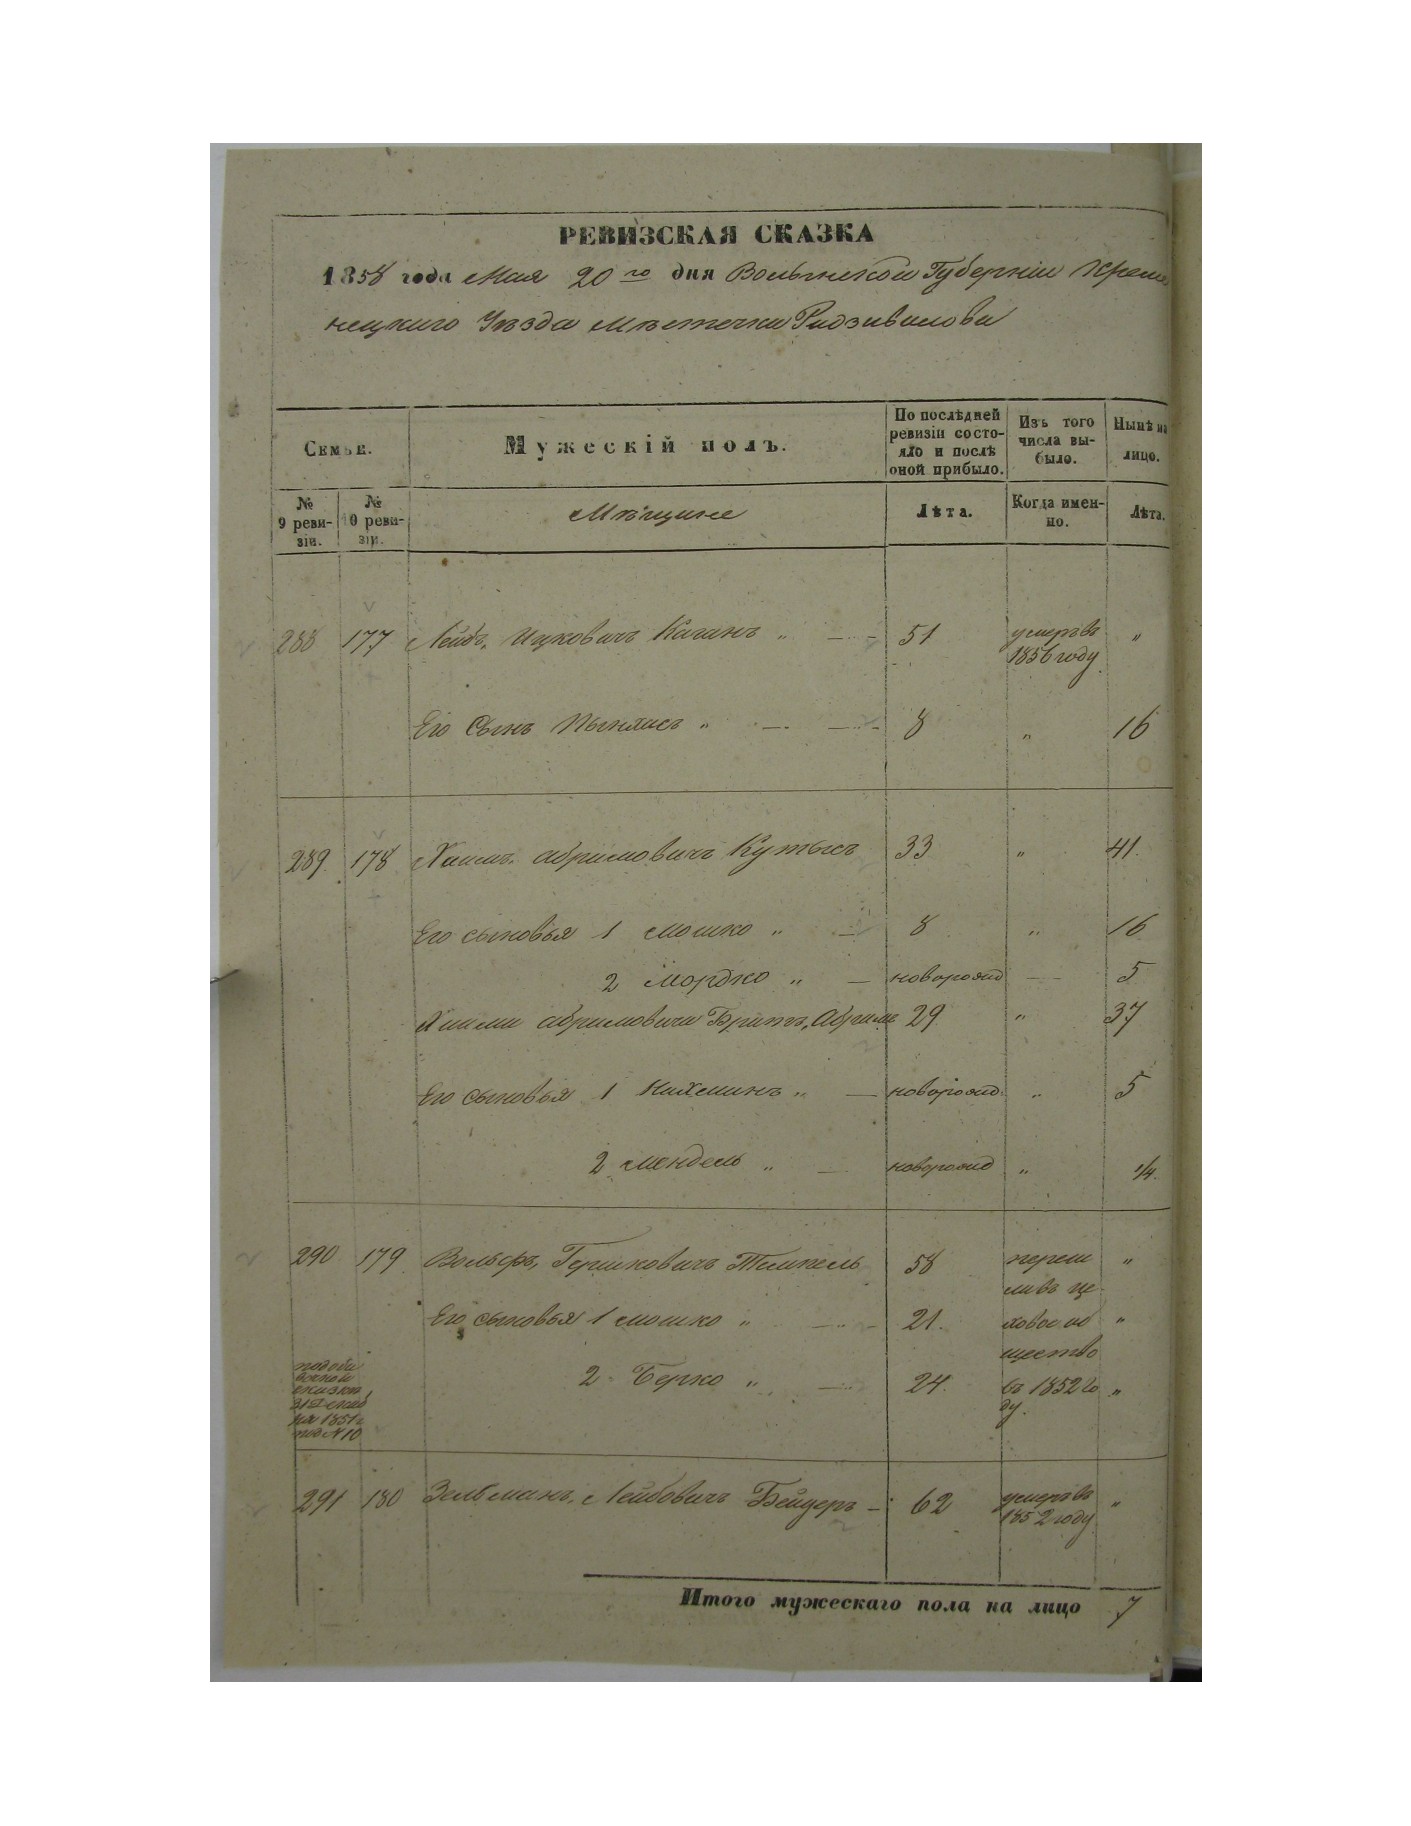 РЕВИЗСКАЯ СКАЗКА
1858 года Мая 20го дня Волынской Губерніи Креме
нецкаго Уѣзда мѣстечка Радзивилова
Семьи.
Мужескій полъ.
По послѣдней ревизіи состо-
яло и послѣ оной прибыло.
Изъ того числа вы-
было.
Нынѣ на лицо.
№ 9 реви-
зіи.
№ 10 реви-
зіи.
Мѣщане
Лѣта.
Когда имен-
но.
Лѣта.
288 177 Лейбъ, Ицковичъ Каганъ „ 51 умеръ въ „
1856 году
Его Сынъ „ 8 „ 16
289 178 Хаимъ Абрамовичъ Кутысъ 33 „ 41.
Его сыновья 1 Мошко „ — 8 „ 16
2 Мордко „ — новорожд — 5
Хаима Абрамовича Братъ, Абрамъ 29 „ 37
Его сыновья 1 Нахманъ „ — новорожд. „ 5
2 Мендель „ — новорожд „ 1/4.
290 179 Вольфъ, Гершковичъ Темпель 58 переш „
ливъ це
Его сыновья 1 Мошко „ — 21. ховое об „
щество
2 Берко „ — 24. въ 1852 го „
ду.
подоба
вочной
сказкѣ
31 Декаб
ря 1851 г
под N 10
291 180 Зельманъ, Лейбовичъ Бейдеръ — 62 умеръ въ „
1852 году
Итого мужескаго пола на лицо 7